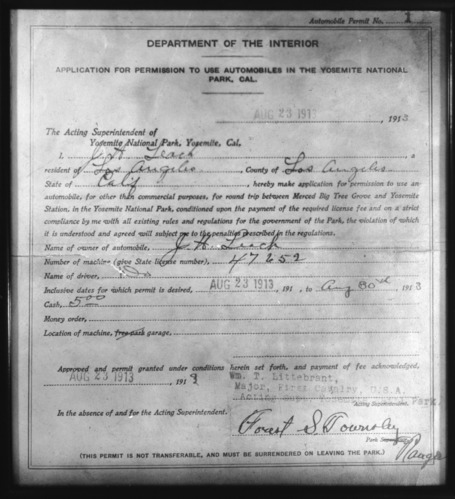 Automobile Permit No. 1
DEPARTMENT OF THE INTERIOR
APPLICATION FOR PERMISSION TO USE AUTOMOBILES IN THE YOSEMITE NATIONAL
PARK, CAL.
AUG 23 1913, 1913
The Acting Superintendent of
Yosemite National Park, Yosemite, Cal.
I, J. H. Leach, a
resident of Los Angeles, County of Los Angeles
State of Calif, hereby make application for permission to use an
automobile, for other than commercial purposes, for round trip between Merced Big Tree Grove and Yosemite
Station, in the Yosemite National Park, conditioned upon the payment of the required license fee and on a strict
compliance by me with all existing rules and regulations for the government of the Park, the violation of which
it is understood and agreed will subject me to the penalties described in the regulations.
Name of owner of automobile, J. H. Leach
Number of machine (give State license number), 47252
Name of driver, Do
Inclusive dates for which permit is desired, AUG 23 1913, 191 , to Aug 30th 1913
Cash, 5.00
Money order,
Location of machine, free park garage,
Approved and permit granted under conditions herein set forth, and payment of fee acknowledged.
AUG 23 1913, 191
Wm. T. Littebrant,
Major, First Cavalry, U.S.A.
Acting Supt. Park.
Acting Superintendent.
In the absence of and for the Acting Superintendent.
Forest S. Townsley
Park Ranger
(THIS PERMIT IS NOT TRANSFERABLE, AND MUST BE SURRENDERED ON LEAVING THE PARK.)